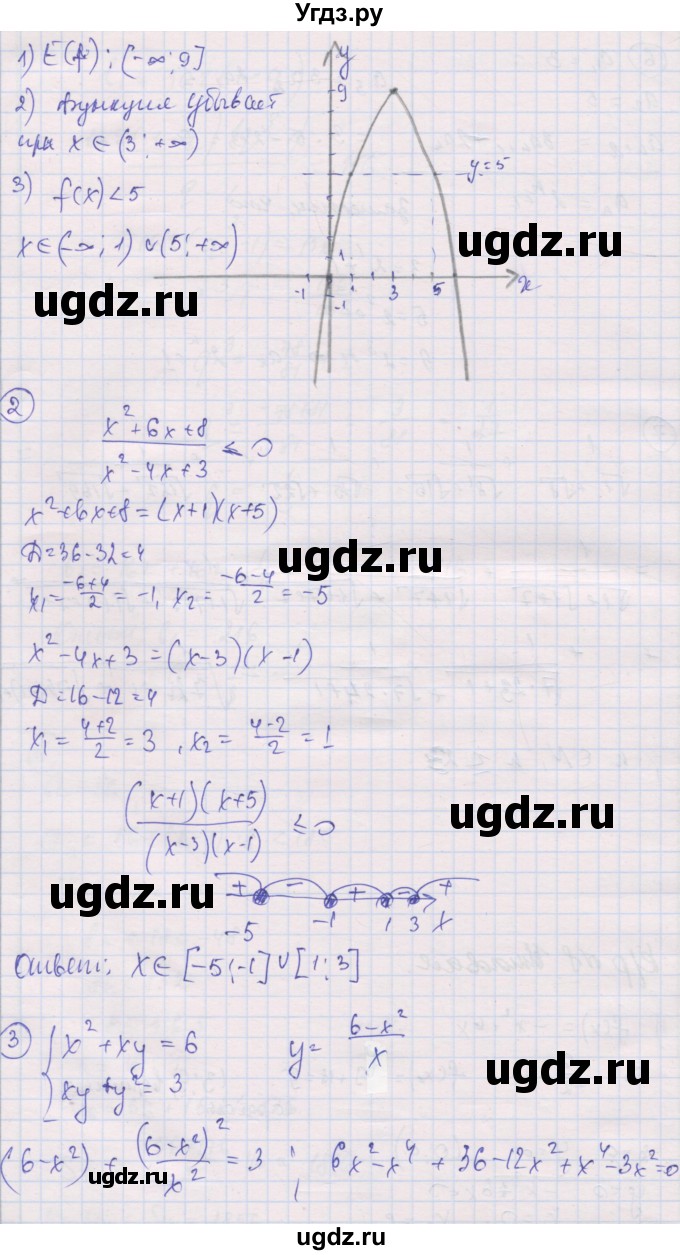 Угдз.ру
1) E(f): (-∞; 9]
2) Функция убывает
при x ∈ (3; +∞)
3) f(x) < 5
x ∈ (-∞; 1) ∪ (5; +∞)
y
9
y=5
1
-1 3 5 x
-1
ugdz.ru
ugdz.ru
2
(x²+6x+8)/(x²-4x+3) ≤ 0
ugdz.ru
x²+6x+8=(x+1)(x+5)
D=36-32=4
ugdz.ru
x₁=(-6+4)/2=-1, x₂=(-6-4)/2=-5
x²-4x+3=(x-3)(x-1)
D=16-12=4
x₁=(4+2)/2=3, x₂=(4-2)/2=1
((x+1)(x+5))/((x-3)(x-1)) ≤ 0
ugdz.ru
+ - + - +
ugdz.ru
-5 -1 1 3 x
Ответ: x ∈ [-5;-1] ∪ [1;3]
3
{ x²+xy=6 y=(6-x²)/x
{ xy+y²=3
ugdz.ru
(6-x²)+(6-x²)²/x²=3; 6x²-x⁴+36-12x²+x⁴-3x²=0
ugdz.ru
ugdz.ru